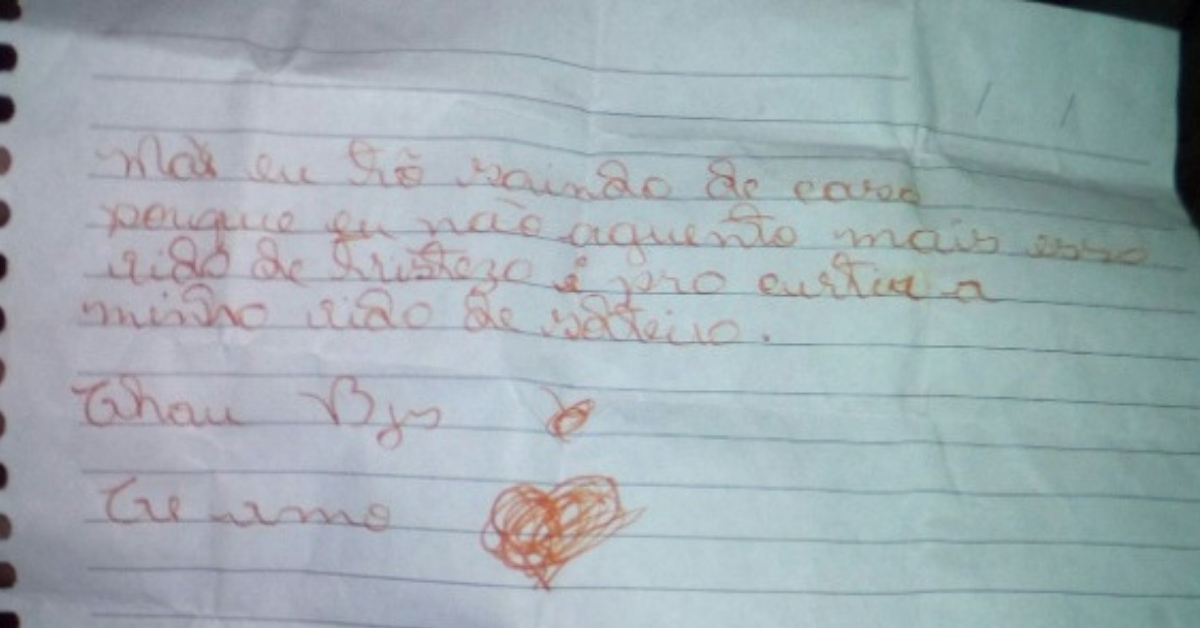 Mas eu tô saindo de casa
porque eu não aguento mais essa
vida de tristeza é pra curtir a
minha vida de solteira.
Tchau Bjs
Te amo